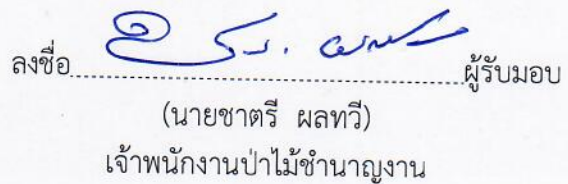 ลงชื่อ........................................................ผู้รับมอบ
(นายชาตรี ผลทวี)
เจ้าพนักงานป่าไม้ชำนาญงาน